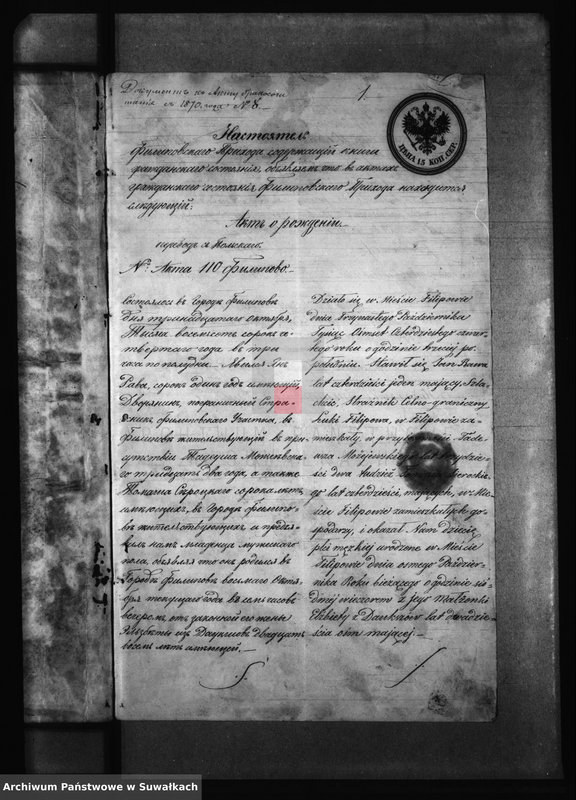 Документъ къ Акту бракосоче
танія съ 1870 года № 8.
1.
ЦѢНА 15 КОП. СЕР.
Настоятель
Филиповскаго Прихода содержащій книги
гражданскаго состоянія, объявляетъ что въ актахъ
гражданскаго состоянія Филиповскаго Прихода находится
слѣдующій:
Актъ о рожденіи
переводъ съ Польскаго.
№ Акта 110 Филипово.
Состоялся въ Городѣ Филиповѣ
дня тринадцатаго Октября,
Тысяча восемьсотъ сорокъ че
твертаго года въ три
часа по полудни. Явился Янъ
Рава, сорокъ одинъ годъ имѣющій,
Дворянинъ, пограничный Стра-
жникъ Филиповскаго Участка, въ
Филиповѣ жительствующій въ при
сутствіи Тадеуша
го тридцать два года, а также
Томаша сорокъ лѣтъ
имѣющихъ, въ Городѣ Филипо-
вѣ жительствующихъ и предъя-
вилъ намъ младенца мужескаго
пола, объявляя что онъ родился въ
Городѣ Филиповѣ восьмаго Октя-
бря текущаго года въ семь часовъ
вечеромъ, отъ законной его жены
Эльжбеты изъ двадцать
восемь лѣтъ имѣющей.
Działo się w Mieście Filipowie
dnia trzynastego Października
Tysiąc Ośmset Czterdziestego czwar-
tego roku o godzinie trzeciej po
południu. Stawił się Jan Rawa
lat czterdzieści jeden mający Szla-
chcic, Strażnik Celno-graniczny
Łuki Filipowa, w Filipowie za-
mieszkały, w przytomności Tade-
usza lat trzydzie-
ści dwa tudzież
go lat czterdzieści mających, w Mie-
ście Filipowie zamieszkałych go-
spodarzy, i okazał Nam dziecię
płci męzkiej urodzone w Mieście
Filipowie dnia osmego Paździer-
nika Roku bieżącego o godzinie sió-
dmej wieczorem z jego Małżonki
Elżbiety z lat dwadzie-
ścia ośm mającej.
Archiwum Państwowe w Suwałkach